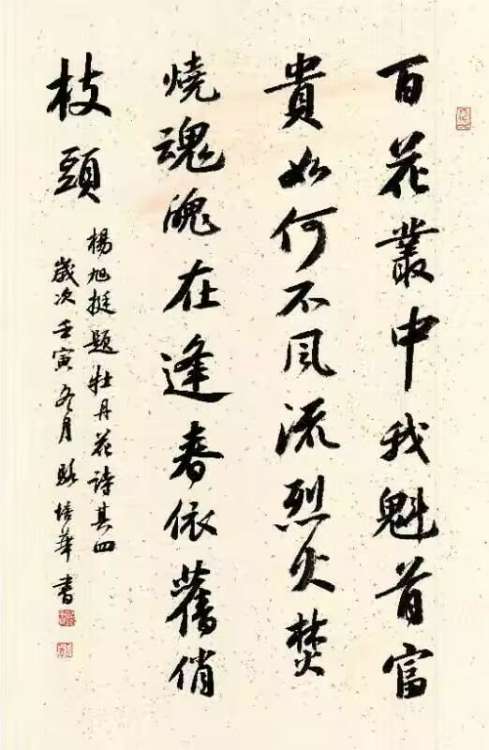 百花叢中我魁首富
貴如何不風流烈火焚
燒魂魄在逢春依舊俏
枝頭
楊旭挺題牡丹花詩其四
歲次壬寅冬月 培華書